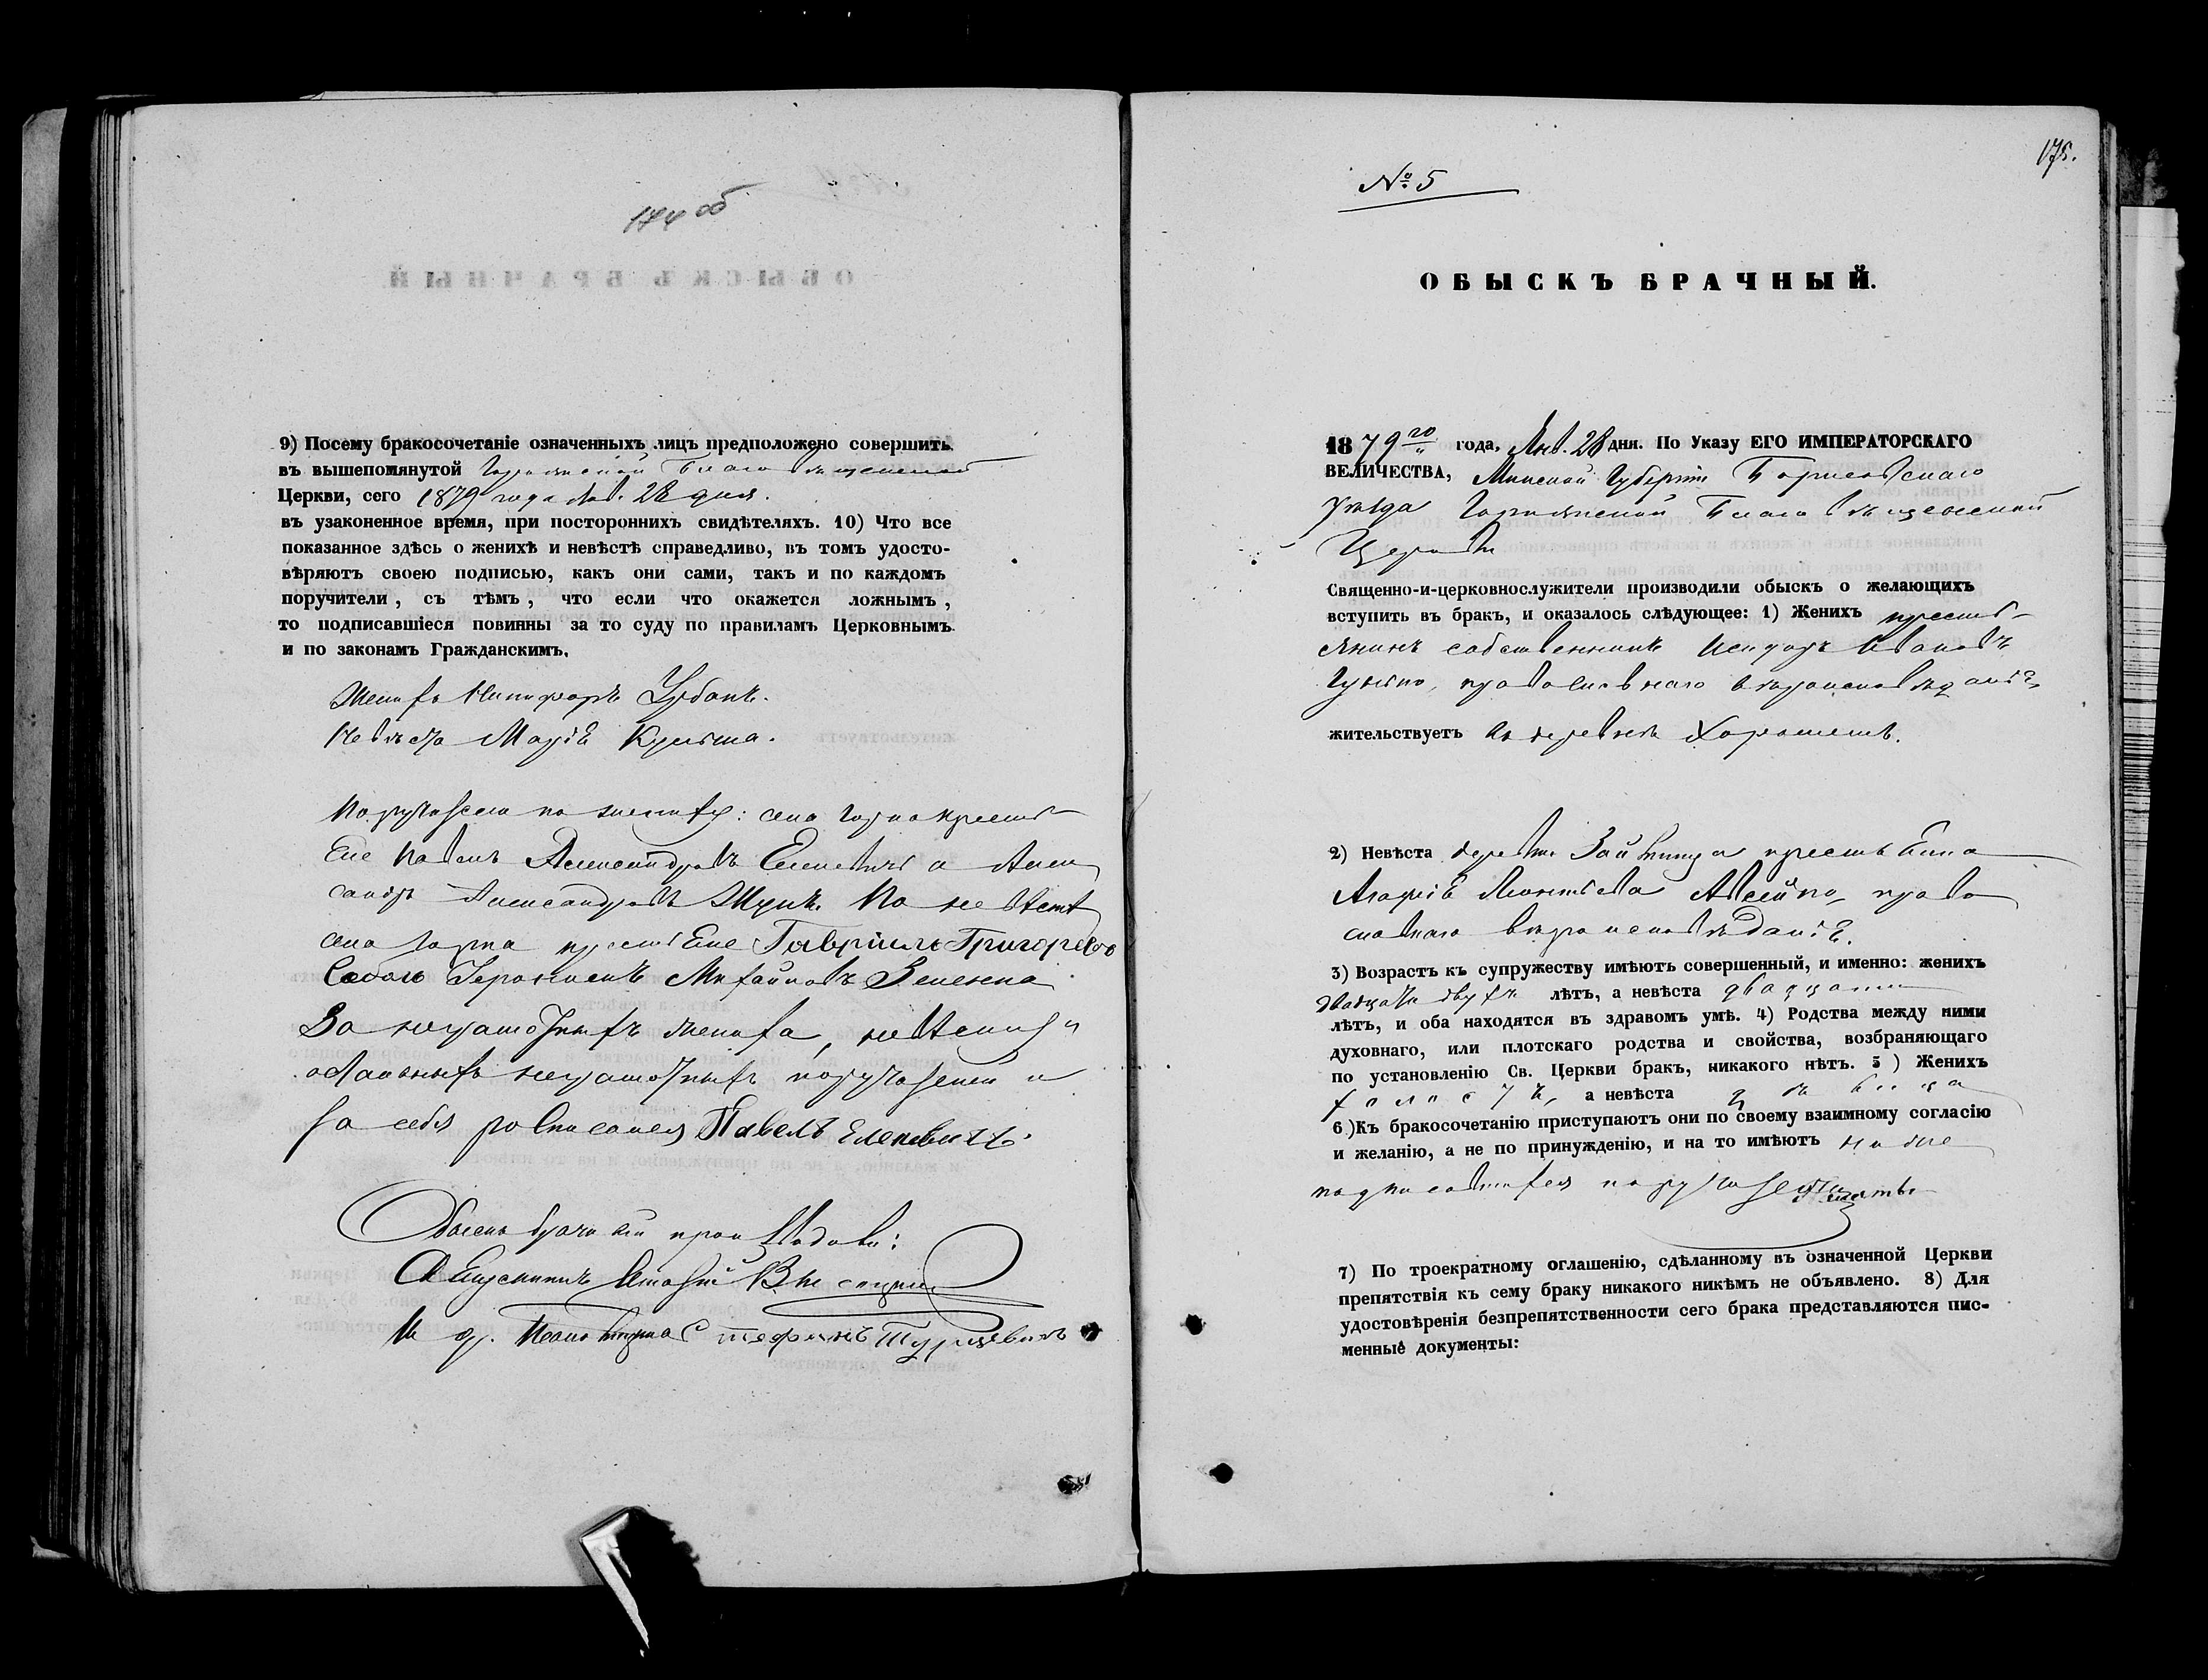 174 об
9) Посему бракосочетаніе означенныхъ лицъ предположено совершить
въ вышепомянутой Горнянской Благовѣщенской
Церкви, сего 1879 года Янв. 28 дня.
въ узаконенное время, при постороннихъ свидѣтеляхъ. 10) Что все
показанное здѣсь о женихѣ и невѣстѣ справедливо, въ томъ удосто-
вѣряютъ своею подписью, какъ они сами, такъ и по каждомъ
поручители, съ тѣмъ, что если что окажется ложнымъ,
то подписавшіеся повинны за то суду по правиламъ Церковнымъ
и по законамъ Гражданскимъ.
Женихъ Никифоръ Урбанъ.
Невѣста Марія
села Горна крестья
Павелъ Александровъ Еленевичъ и Алек
сандръ Александровъ По невѣстѣ
села Горна Гавріилъ Григорьевъ
Соболь Михайловъ
За неграмотныхъ жениха, невѣсту и
неграмотныхъ поручителей и
за себя росписался Павелъ Еленевичъ
Обыскъ брачный производили:
Стефанъ Турцевичъ
175.
№ 5
ОБЫСКЪ БРАЧНЫЙ.
1879го года, Янв. 28 дня. По Указу ЕГО ИМПЕРАТОРСКАГО
ВЕЛИЧЕСТВА, Минской Губерніи Борисовскаго
уѣзда Горнянской Благовѣщенской
Церкви
Священно-и-церковнослужители производили обыскъ о желающихъ
вступить въ бракъ, и оказалось слѣдующее: 1) Женихъ крестья-
янинъ собственникъ Исидоръ Ивановъ
православнаго вѣроисповѣданія,
жительствуетъ въ деревнѣ
2) Невѣста деревни крестьянка
Агафія Леонтьева православ
славнаго вѣроисповѣданія.
3) Возрастъ къ супружеству имѣютъ совершенный, и именно: женихъ
двадцати двухъ лѣтъ, а невѣста двадцати
лѣтъ, и оба находятся въ здравомъ умѣ. 4) Родства между ними
духовнаго, или плотскаго родства и свойства, возбраняющаго
по установленію Св. Церкви бракъ, никакого нѣтъ. 5) Женихъ
холостъ, а невѣста дѣвица
6) Къ бракосочетанію приступаютъ они по своему взаимному согласію
и желанію, а не по принужденію, и на то имѣютъ
7) По троекратному оглашенію, сдѣланному въ означенной Церкви
препятствія къ сему браку никакого никѣмъ не объявлено. 8) Для
удостовѣренія безпрепятственности сего брака представляются пис-
менные документы: